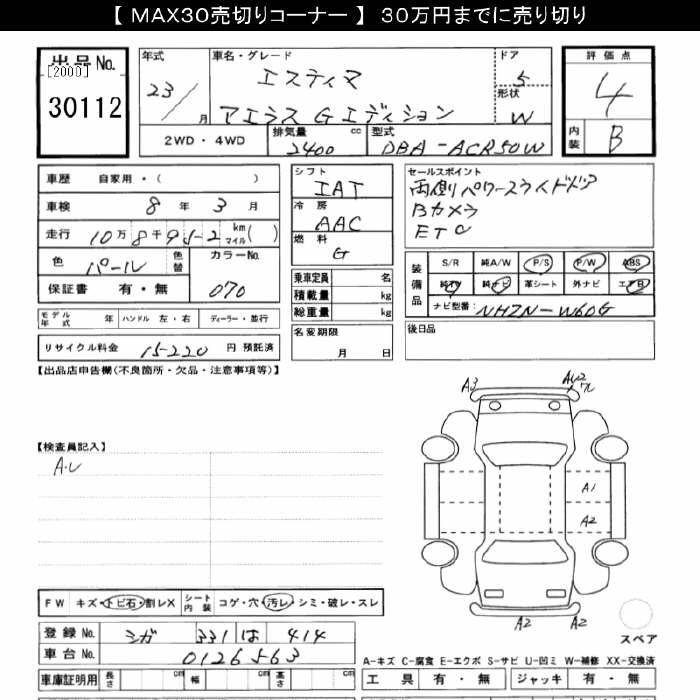 【 MAX30売切りコーナー 】 30万円までに売り切り
出品No.
[2000]
30112
年式 23/ 月
車名・グレード エスティマ
アエラス G エディション
ドア 5
形状 W
評価点 4
内装 B
2WD・4WD
排気量 2400 cc
型式 DBA-ACR50W
車歴 自家用・( )
車検 8 年 3 月
走行 10万8千952 km マイル( )
色 パール 色替 カラーNo. 070
保証書 有・無
モデル年式 年 ハンドル 左・右 ディーラー・並行
リサイクル料金 15220 円 預託済
シフト IAT
冷房 AAC
燃料 G
乗車定員 名
積載量 kg
総重量 kg
名変期限 月 日
セールスポイント
両側パワースライドドア
Bカメラ
ETC
装備品
S/R 純A/W P/S P/W ABS
純TV 純ナビ 革シート 外ナビ エアB
ナビ型番: NHZN-W60G
後日品
【出品店申告欄(不良箇所・欠品・注意事項等)】
【検査員記入】
A.U
A3
AU2
A1
A2
A2 A2
FW キズ・トビ石・割レX シート内装 コゲ・穴・汚レ・シミ・破レ・スレ
登録No. シガ 331 は 414
車台No. 0126563
車庫証明用 長さ cm 幅 cm 高さ cm
スペア
A-キズ C-腐食 E-エクボ S-サビ U-凹ミ W-補修 XX-交換済
工具 有・無 ジャッキ 有・無